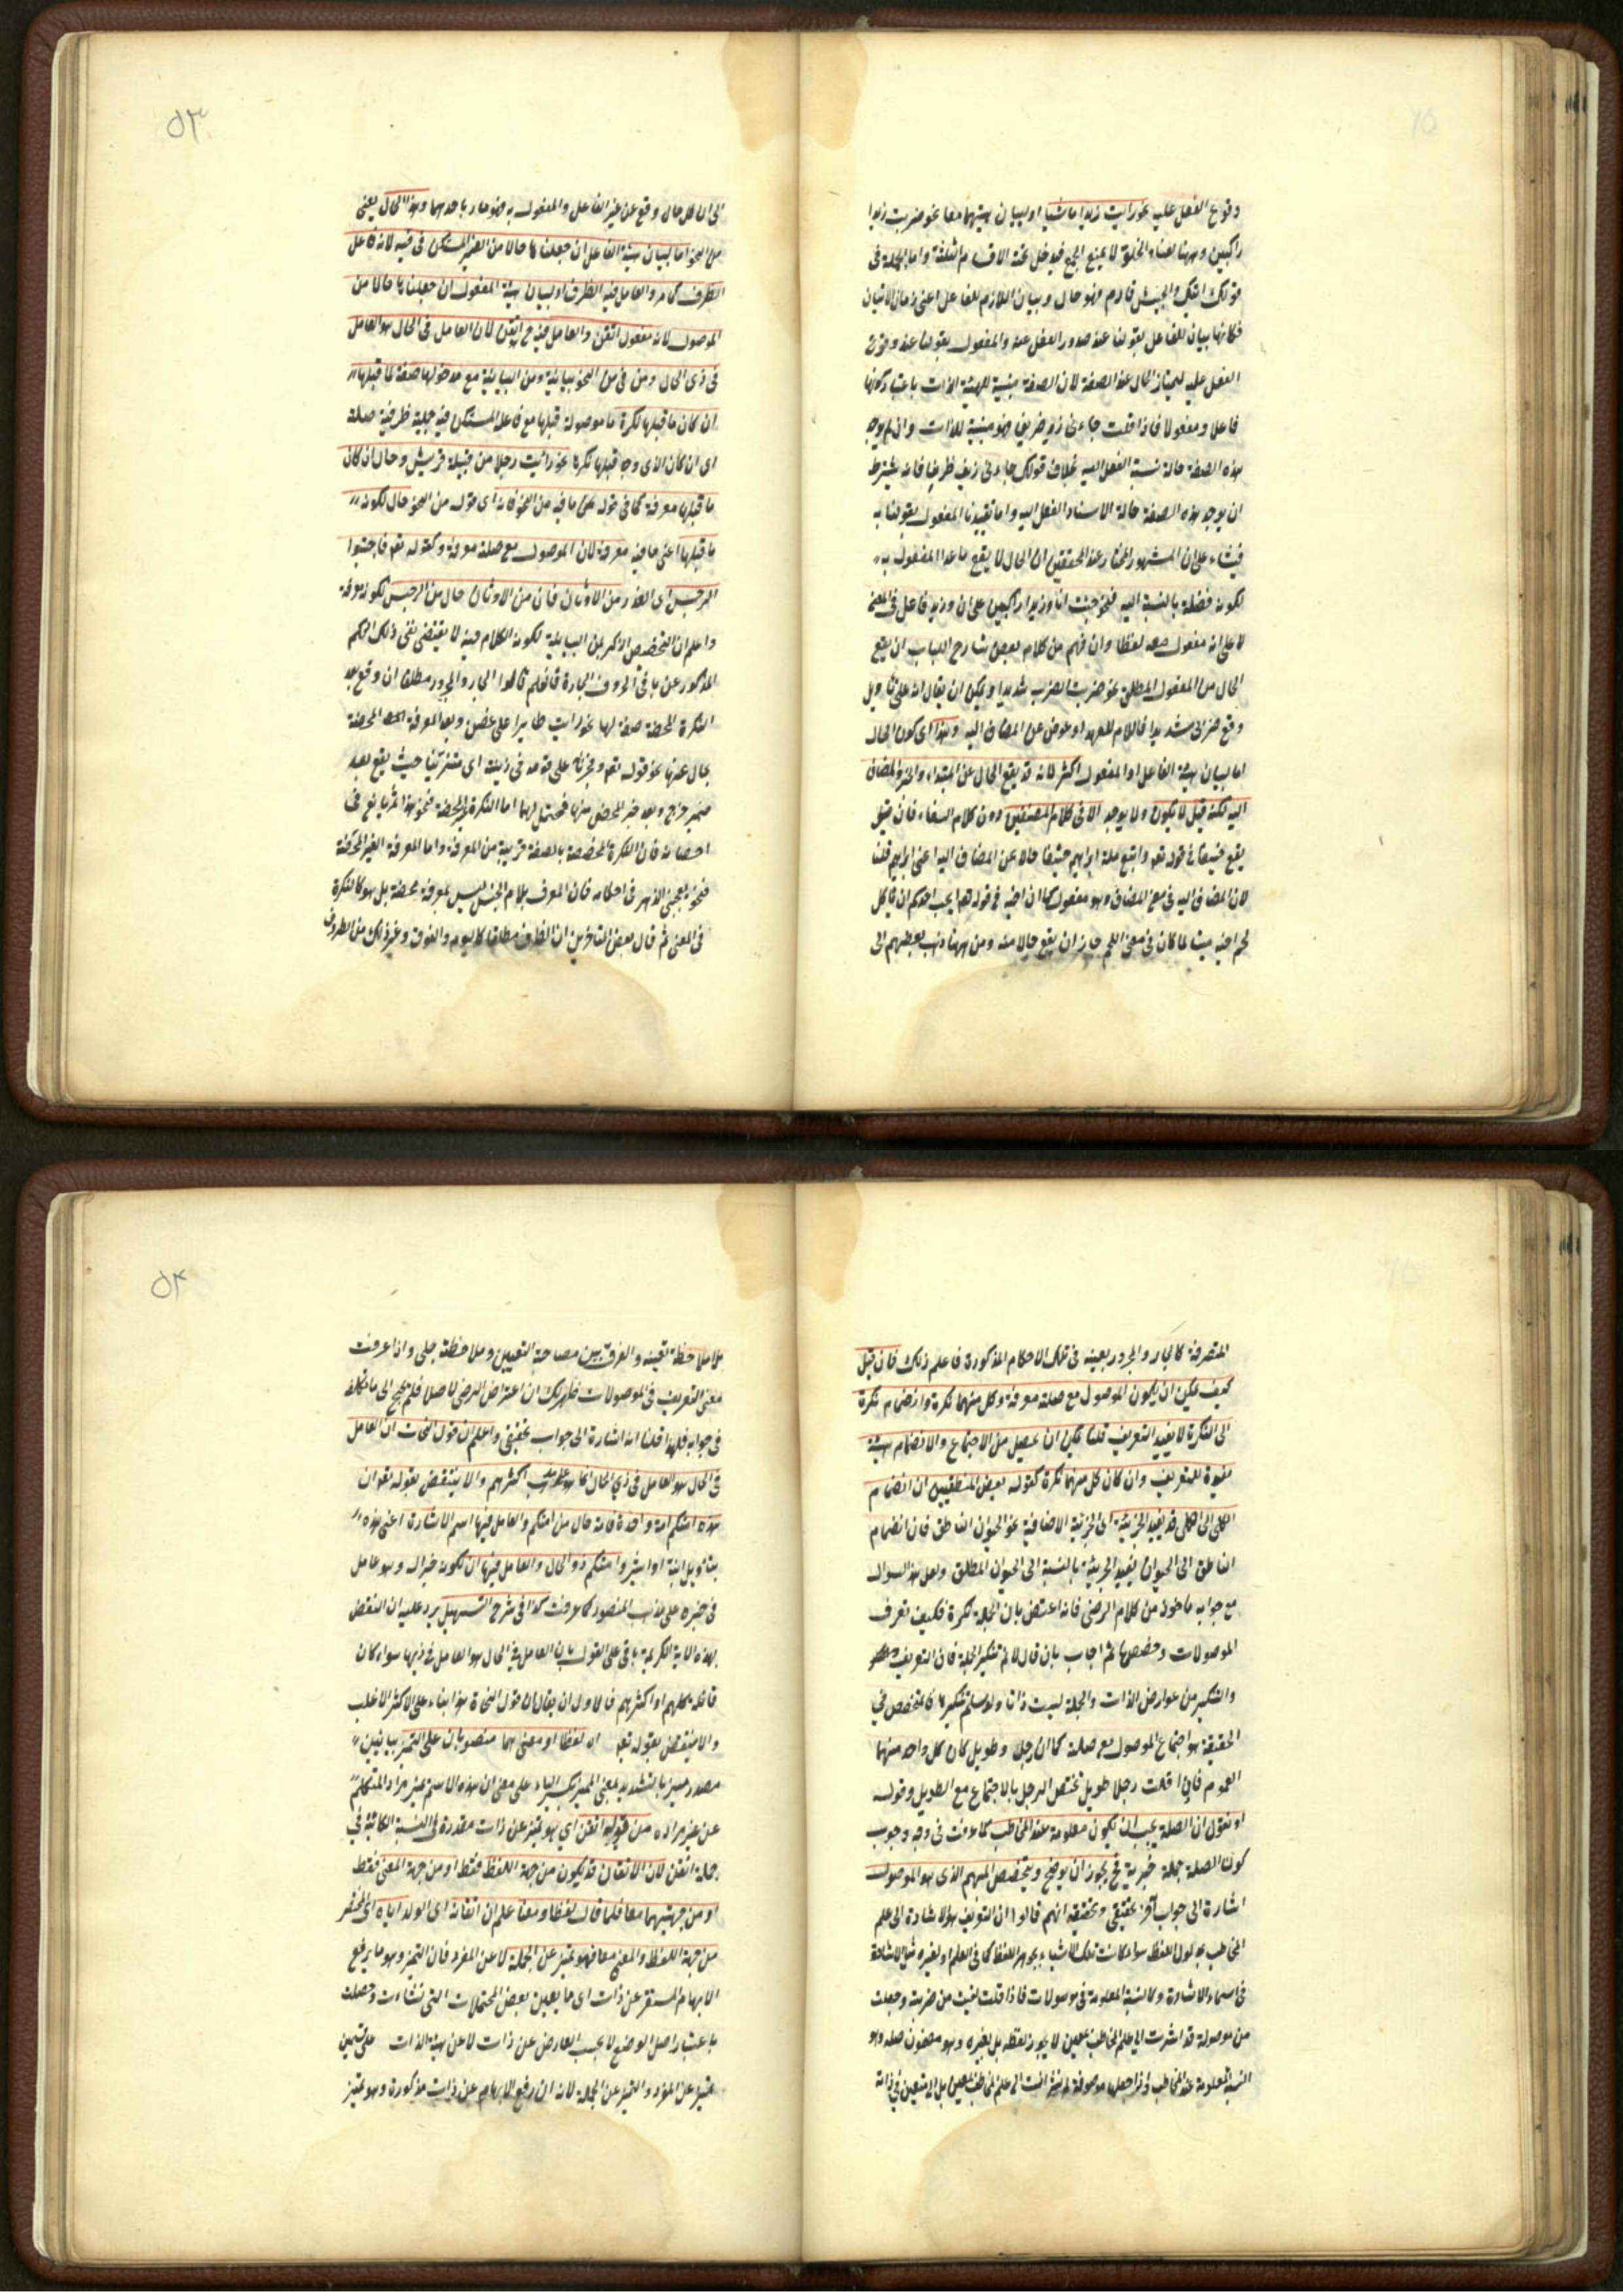 وقوع الفعل عليه نحو رايت زيدا ماشيا او لبيان هيئتهما معا نحو ضربت زيدا
راكبين وههنا لعناد الخلو لا يمنع الجمع فيدخل تحته الاقسام الثلثة واما الجملة في
قولك اتيتك والجيش قادم فهو حال وبيان اللازم للفاعل اعنى زمان الاتيان
فكانها بيان للفاعل بقولنا عند صدور الفعل عنه والمفعول بقولنا عند وقوع
الفعل عليه ليمتاز الحال عن الصفة لان الصفة مبنية لهيئة الذات باعتبار كونها
فاعلا ومفعولا فاذا قلت جاءنى زيد ظريف فهو مبنية للذات وان لم يوجد
هذه الصفة حالة نسبة الفعل اليه بخلاف قولك جاءنى زيد ظريفا فانه يشترط
ان يوجد هذه الصفة حالة الاسناد الفعل اليه واما تقييدنا المفعول بقولنا به
فبناء على ان المشهور المختار عند المحققين ان الحال لا يقع ما عدا المفعول به
لكونه فضلة بالنسبة اليه فنحو جئت انا وزيدا راكبين على ان وزيد فاعل فى المعنى
لا على انه مفعول معه لفظا وان فهم من كلام بعض شارح اللباب ان يقع
الحال من المفعول المطلق نحو ضربت الضرب شديدا ويمكن ان يقال انه على تاويل
وقع ضربى شديدا فاللام للعهد او عوض عن المضاف اليه وهذا اى كون الحال
اما لبيان هيئة الفاعل او المفعول اكثر لانه قد يقع الحال عن المبتداء والخبر والمضاف
اليه لكنه قيل لا يكون ولا يوجد الا فى كلام المصنفين دون كلام البلغاء فان قيل
يقع حنيفا فى قوله تعم واتبع ملة ابراهيم حنيفا حالا عن المضاف اليه اعنى ابراهيم قلنا
لان المضاف اليه فى معنى المضاف وهو مفعول كما ان اخيه فى قوله تعم ايحب احدكم ان ياكل
لحم اخيه ميتا لما كان فى معنى اللحم جاز ان يقع حالا منه ومن ههنا ذهب بعضهم الى
الى ان كل حال وقع عن غير الفاعل والمفعول به فهو مادل باحدهما وهذا الحال يعنى
من النحو اما لبيان هيئة الفاعل ان جعلنا ها حالا من الضمير المستكن فى فيه لانه فاعل
الظرف كما مر والعامل فيه الظرف او لبيان هيئة المفعول ان جعلناها حالا من
الموصول لانه مفعول اتقن والعامل فيه ح اتقن لان العامل فى الحال هو العامل
فى ذى الحال ومن فى من النحو بيانية ومن البيانية مع مدخولها صفة لما قبلها
ان كان ما قبلها نكرة ما موصولة قبلها مع فاعله المستكن فيه جملة ظرفية صلة
اى ان كان الذى وجد قبلها نكرة نحو رأيت رجلا من قبيلة قريش وحال ان كان
ما قبلها معرفة كما فى قوله على ما فيه من النحو فانه اى قوله من النحو حال لكونه
ما قبلها اعنى ما فيه معرفة لان الموصول مع صلته معرفة وكقوله تعم فاجتنبوا
الرجس اى القذر من الاوثان فان من الاوثان حال من الرجس لكونه معرفة
واعلم ان التخصيص الذكر بمن البيانية لكونه الكلام فيه لا يقتضى نفى ذلك الحكم
المذكور عن باقى الحروف الجارة فانهم قالوا الجار والمجرور مطلقا ان وقع بعد
النكرة المحضة صفة لها نحو رايت طايرا على غصن وبعد المعرفة المحضة
حال عنها نحو قوله تعم فخرج على قومه فى زينته اى متزينا حيث يقع بعد
ضمير خرج وبعد غير المحض منها فمحتمل لهما اما النكرة غير المحضة فنحو هذا ثمر يانع فى
اغصانه فان النكرة المخصصة بالصفة قريبة من المعرفة واما المعرفة الغير المحضة
فنحو يعجبنى الزهر فى اكمامه فان المعرف بلام الجنس ليس بمعرفة محضة بل هو كالنكرة
فى المعنى ثم قال بعض المتاخرين ان الظرف مطلقا كاليوم والفوق وغير ذلك من الظروف
المتصرفة كالجار والمجرور بعينه فى تلك الاحكام المذكورة فاعلم ذلك فان قيل
كيف يمكن ان يكون الموصول مع صلته معرفة وكل منهما نكرة وانضمام نكرة
الى النكرة لا يفيد التعريف قلنا يمكن ان يحصل من الاجتماع والانضمام هيئة
مفيدة للتعريف وان كان كل منهما نكرة كقوله بعض المنطقيين ان انضمام
الكلى الى الكلى قد يفيد الجزئية اى الجزئية الاضافية نحو الحيوان الناطق فان انضمام
الناطق الى الحيوان يفيد الجزئية بالنسبة الى الحيوان المطلق ولعل هذا السوال
مع جوابه ماخوذ من كلام الرضى فانه اعترض بان الجملة نكرة فكيف تعرف
الموصولات وتخصصها ثم اجاب بان قال لا نم تنكير الجملة فان التعريف
والتنكير من عوارض الذات والجملة ليست ذاتا ولو سلم تنكيرها فالمخصص فى
الحقيقة هو اجتماع الموصول مع صلته كما ان رجلا وطويل كان كل واحد منهما
العموم فاذا قلت رجل طويل تخصص الرجل بالاجتماع مع الطويل وقوله
او نقول ان الصلة يجب ان يكون معلومة عند المخاطب كما عرفت فى وجه وجوب
كون الصلة جملة خبرية فح يجوز ان يوضح ويتخصص المبهم الذى هو الموصول
اشارة الى جواب آخر تحقيقى وتحقيقه انهم قالوا ان التعريف هو الاشارة الى علم
المخاطب بمدلول اللفظ سواء كانت تلك الاشياء بجوهر اللفظ كما فى العلم او بغيره مثل الاشارة
فى اسماء الاشارة وكالنسبة المعلومة فى موصولات فاذا قلت لقيت من ضربته وجعلت
من موصولة قد اشرت الى علم المخاطب بمعين لا بجوهر لفظه بل بغيره وهو مضمون صلته وهو
النسبة المعلومة عند المخاطب واذا جعلها موصوفة لم تشر انت الى علم المخاطب بمعين بل لا يتعين فى ذاته
بلا ملاحظة تعينه والفرق بين مصاحة التعيين وملاحظة جلى واذا عرفت
معنى التعريف فى الموصولات ظهر لك ان اعتراض الرضى لا اصل فلم يحتج الى ما تكلف
فى جوابه فلهذا قلنا انه اشارة الى جواب تحقيقى واعلم ان قول النحات ان العامل
فى الحال هو العامل فى ذى الحال انما هو على مذهب اكثرهم والا ينتقض بقوله تعم وان
هذه امتكم امة واحدة فانه حال من امتكم والعامل فيها اسم الاشارة اعنى هذه
بتأويل انبه او اشير وامتكم ذو الحال والعامل فيها ان لكونه خبرا له وهو عامل
فى خبره على مذهب المنصور كما عرفت كذا فى شرح التسهيل يرد عليه ان النقض
بهذه الاية الكريمة باق على القول بان العامل فى الحال هو العامل فى ذيها سواء كان
قائله كلهم او اكثرهم فالاولى ان يقال ان قول النحاة هذا بناء على الاكثر الاغلب
والا ينتقض بقوله تعم اه لفظا او معنى هما منصوبان على التميز بيائين
مصدر ميز بالتشديد بمعنى المميز بكسر الياء على معنى ان هذه الاسم يميز مراد المتكلم
عن غير مراده من قوله اتقن اى هو تميز عن ذات مقدرة فى النسبة الكائنة فى
جملة اتقن لان الاتقان قد يكون من جهة اللفظ فقط او من جهة المعنى فقط
او من جهتيهما معا فلما قال لفظا ومعنا علم ان اتقانه اى الولد اياه اى المختصر
من جهة اللفظ والمعنى معا فهو تميز عن الجملة لا عن المفرد فان التميز وهو ما يرفع
الابهام المستقر عن ذات اى ما يعين بعض المحتملات التى نشاءت وحصلت
باعتبار اصل الوضع لا بحسب العارض عن ذات لا عن هيئة الذات على قسمين
تميز عن المفرد والتميز عن الجملة لانه ان رفع الابهام عن ذات مذكورة وهو تميز
٥٣
٥٤